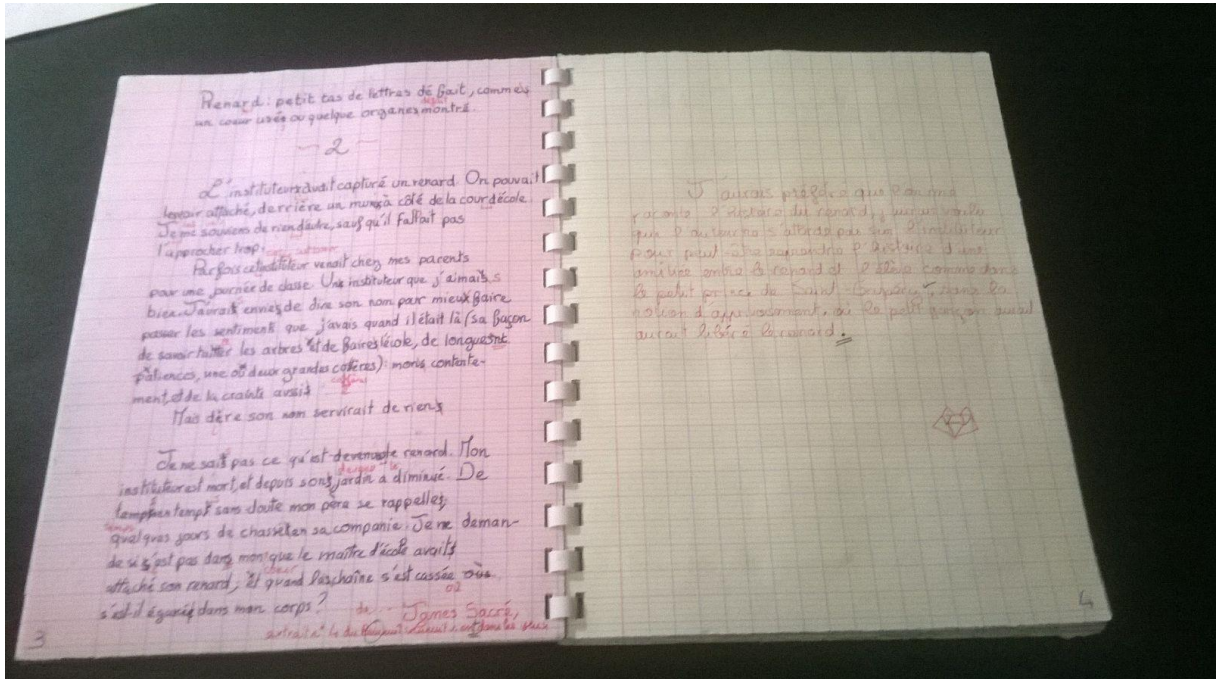 Renard : petit tas de lettres défait, comme
un coeur usée ou quelque organes montré.
2
L'instituteur avait capturé un renard. On pouvait
le voir attaché, derrière un mur à côté de la cour d'école.
Je me souviens de rien d'autre, sauf qu'il fallait pas
l'approcher trop.
Parfois cet instituteur venait chez mes parents
pour une journée de classe. Un instituteur que j'aimais
bien. J'aurait envie de dire son nom pour mieux faire
passer les sentiments que j'avais quand il était là (sa façon
de savoir tailler les arbres et de faire l'école, de longues
patiences, une où deux grandes colères) : mais contente-
ment, et de la crainte aussi
Mais dère son nom servirait de rien
Je ne sait pas ce qu'est devenu le renard. Mon
instituteur est mort, et depuis son jardin à diminué. De
temps en temps sans doute mon père se rappelle
quelques jours de chasse en sa companie. Je me deman-
de si s'est pas dans mon que le maître d'école avait
coeur
attaché son renard, et quand la chaîne s'est cassée où
où
s'est-il égaré dans mon corps ?
de James Sacré,
extrait n° 4 du
3
J'aurais préféré que l'on me
raconte l'histoire du renard,
que l'auteur ne s'attarde pas sur l'instituteur
pour peut être rejoindre l'histoire d'une
amitié entre le renard et l'élève comme dans
le petit prince de Saint-Exupéry, dans la
notion d'apprivoisement, où le petit garçon aurait
aurait libéré le renard.
4